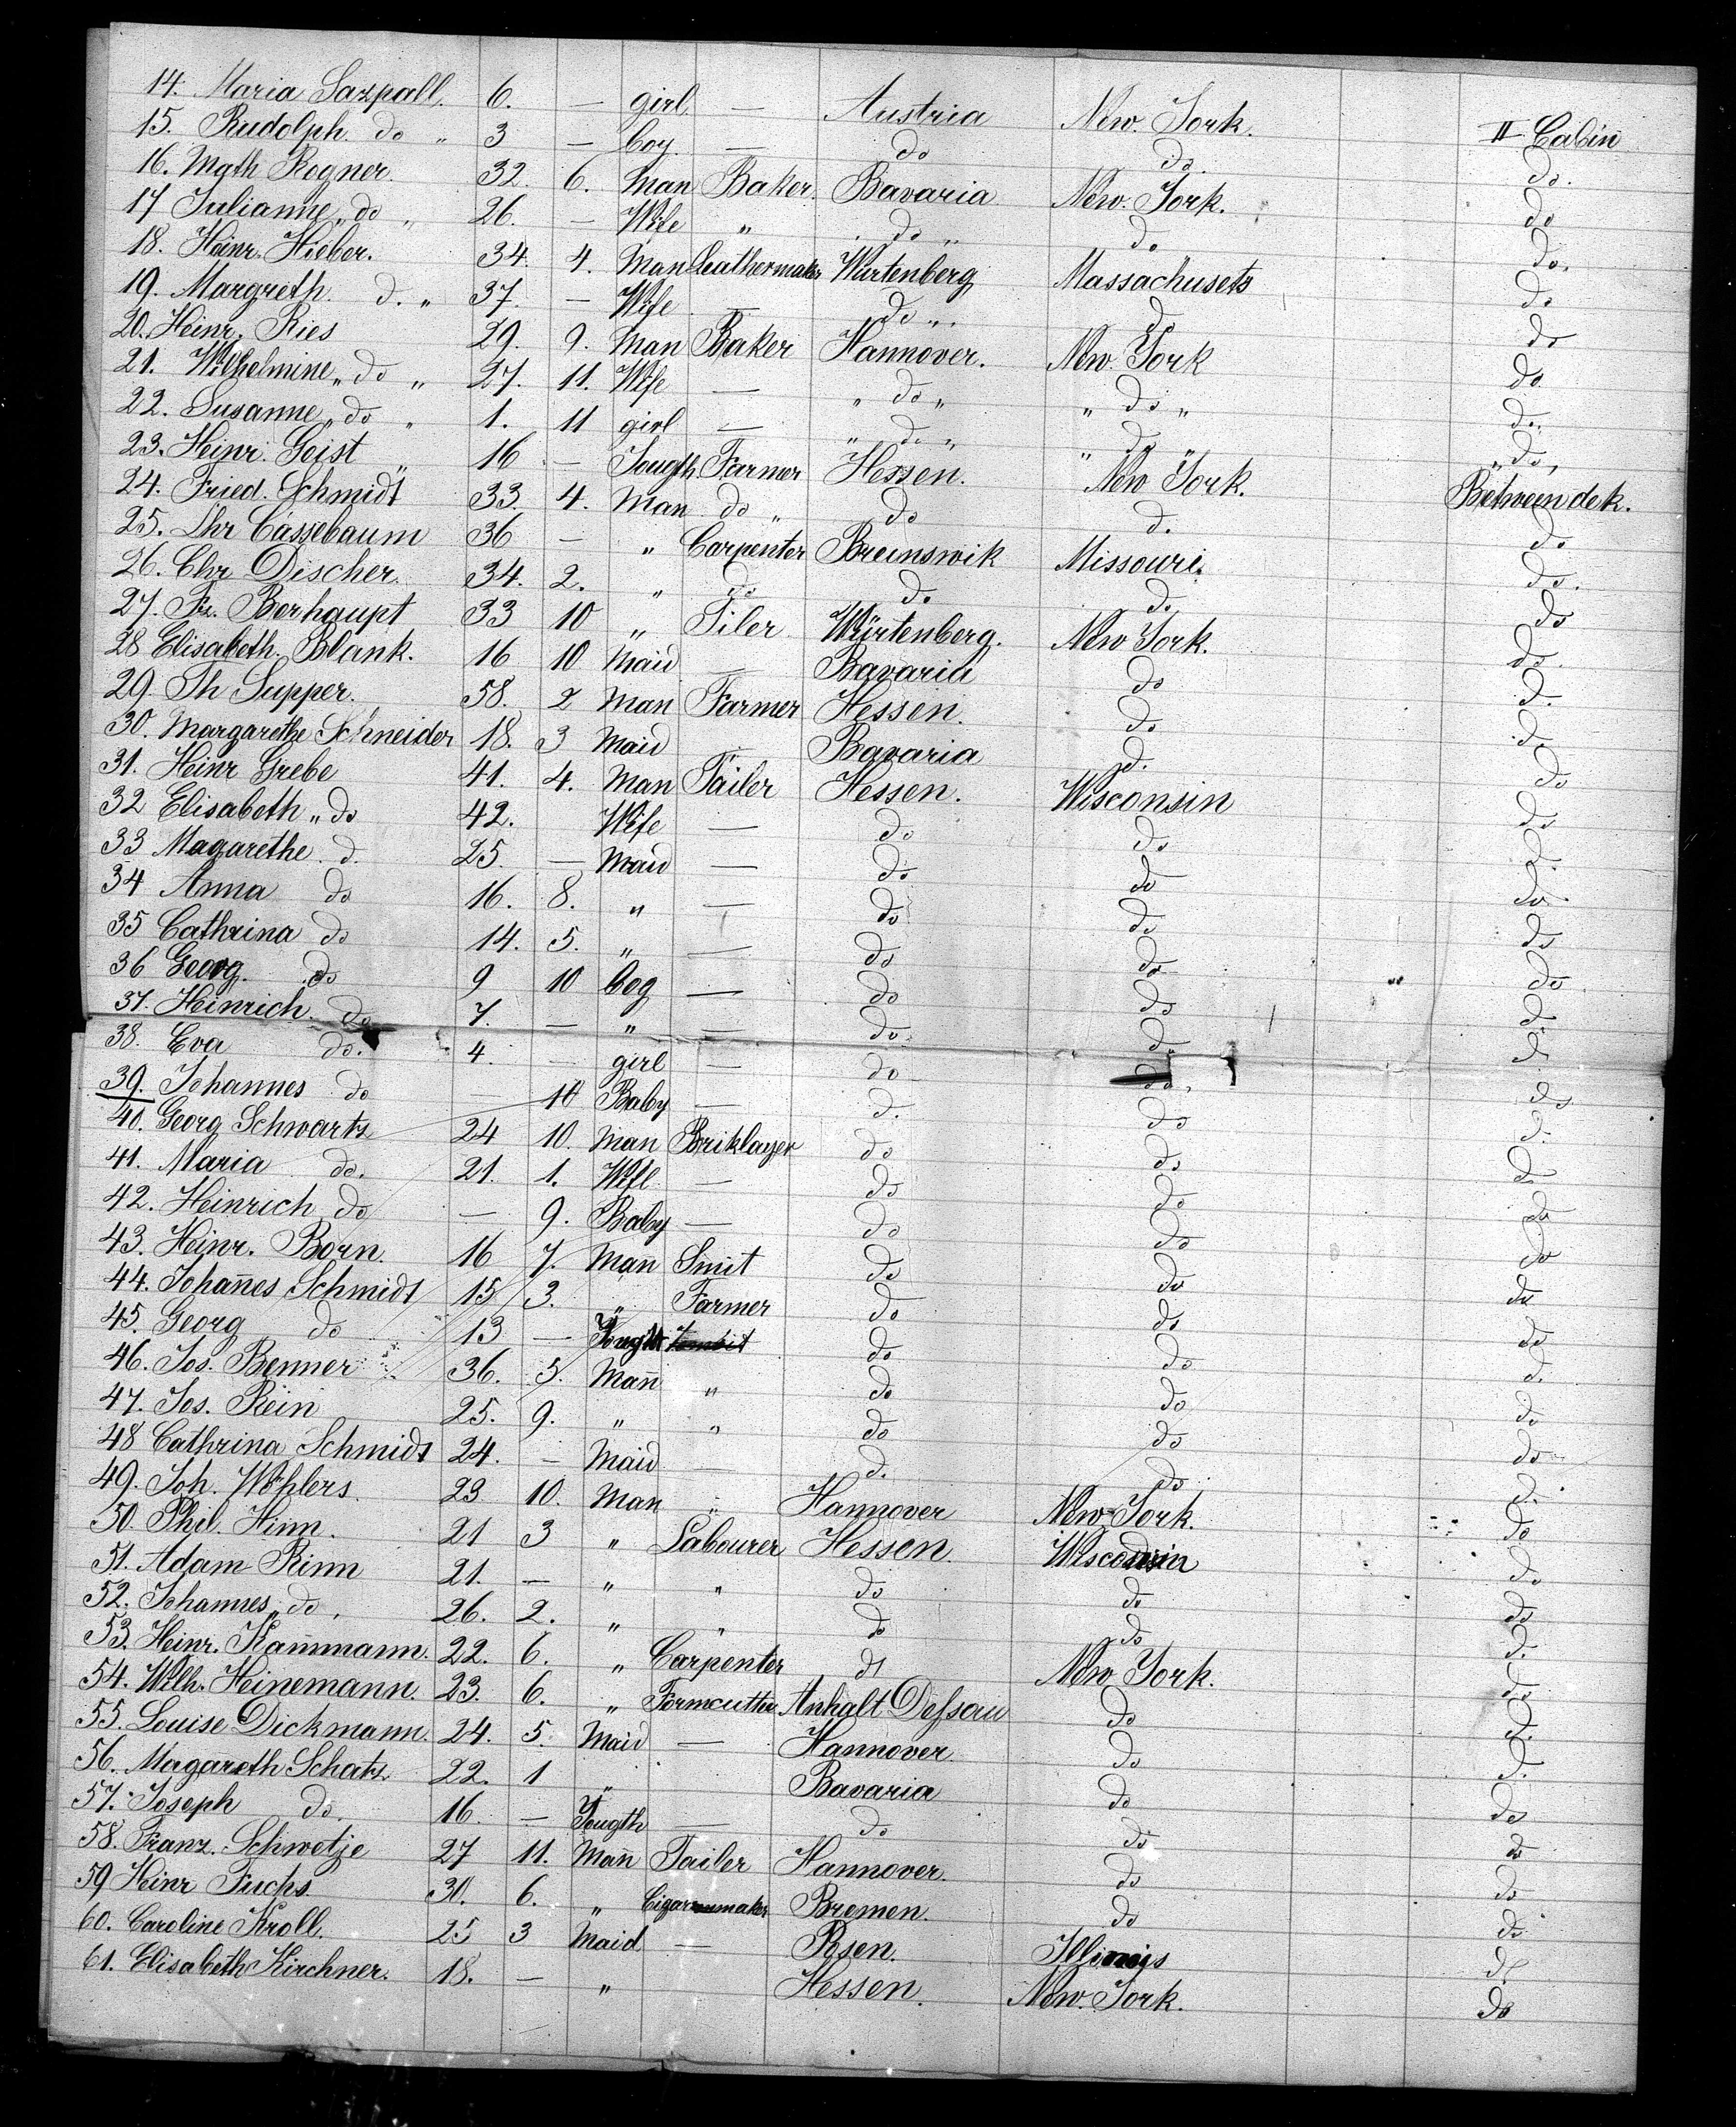 14. Maria Sazpall. 6. — girl — Austria New. York. II Cabin
15. Rudolph. do „ 3 — boy. — do do do.
16. Math Rogner. 32. 6. Man Baker. Bavaria New. York. do
17 Julianne „ do „ 26. — Wife „ do „ do do.
18. Heinr. Hieber. 34. 4. Man Leathermaker Wurtenberg Massachusets do
19. Margreth. d. „ 37. — Wife — do „. do do
20. Heinr. Ries 29. 9. Man Baker Hannover. New. York do
21. Wilhelmine „ do „ 27. 11. Wife — „ do „ „ do „ do.
22. Susanne „ do „ 1. 11 girl — „ do „ „ do „ „ do „
23. Heinr. Geist 16 — Yougth. Farmer Hessen. New York. Between dek.
24. Fried. Schmidt 33. 4. Man do „ do d. do
25. Chr Cassebaum 36 — „ Carpenter Breunswik Missouri. do.
26. Chr Discher. 34. 2. „ do do do do
27. Fr. Borhaupt 33 10 „ Tiler Würtenberg. New York. do.
28 Elisabeth. Blank. 16 10 Maid — Bavaria do d.
29. Th Supper. 58. 2 Man Farmer Hessen. do d.
30. Margarethe Schneider 18. 3 Maid — Bavaria d. do
31. Heinr Grebe 41. 4. Man Tailer Hessen. Wisconsin do
32 Elisabeth „ do 42. Wife — do do d.
33 Magarethe. d. 25. — Maid — do do do.
34 Anna do 16. 8. „ — do do do
35 Cathrina do 14. 5. „ — do do do.
36 Georg. do 9 10 boy — do do d.
37. Heinrich. do 7. — „ — do. do d.
38. Eva do. 4. — girl — do do, do
39. Johannes do — 10 Baby — d. do d.
40. Georg Schwartz 24 10. Man Briklayer do do do
41. Maria do. 21. 1. Wife — do do do
42. Heinrich do — 9. Baby — do do do
43. Heinr. Born. 16 7. Man̄ Smit do do do
44. Johan̄es Schmidt 15 3. „ Farmer do do do
45. Georg do 13 — Yougth do do d.
46. Jos. Benner 36. 5. Man̄ „ do do do
47. Jos. Rein 25. 9. „ „ do do do
48 Cathrina Schmidt 24. — Maid — d. do d.
49. Joh. Wöhlers. 23 10. Man „ Hannover New York. do
50. Phil. Hinn. 21 3 „ Labourer Hessen. Wisconsin do
51. Adam Rinn 21. — „ „ do do do
52. Johannes „ do. 26. 2. „ „ do do d.
53. Heinr. Kam̄mann. 22. 6. „ Carpenter do New York. do
54. Wilh. Heinemann. 23. 6. „ Formcutter Anhalt Dessau do d.
55. Louise Dickmann. 24. 5. Maid — Hannover do d.
56. Magareth Schatz 22. 1 „ Bavaria do do
57. Joseph do. 16. — Yougth — do do do
58. Franz. Schwetje 27 11. Man̄ Tailer Hannover. do do
59 Heinr Fuchs. 30. 6. „ Cigarrmaker Bremen. do do
60. Caroline Kroll. 25 3 Maid — Psen. Illinois d.
61. Elisabeth Kirchner. 18. — „ Hessen. New. York. do